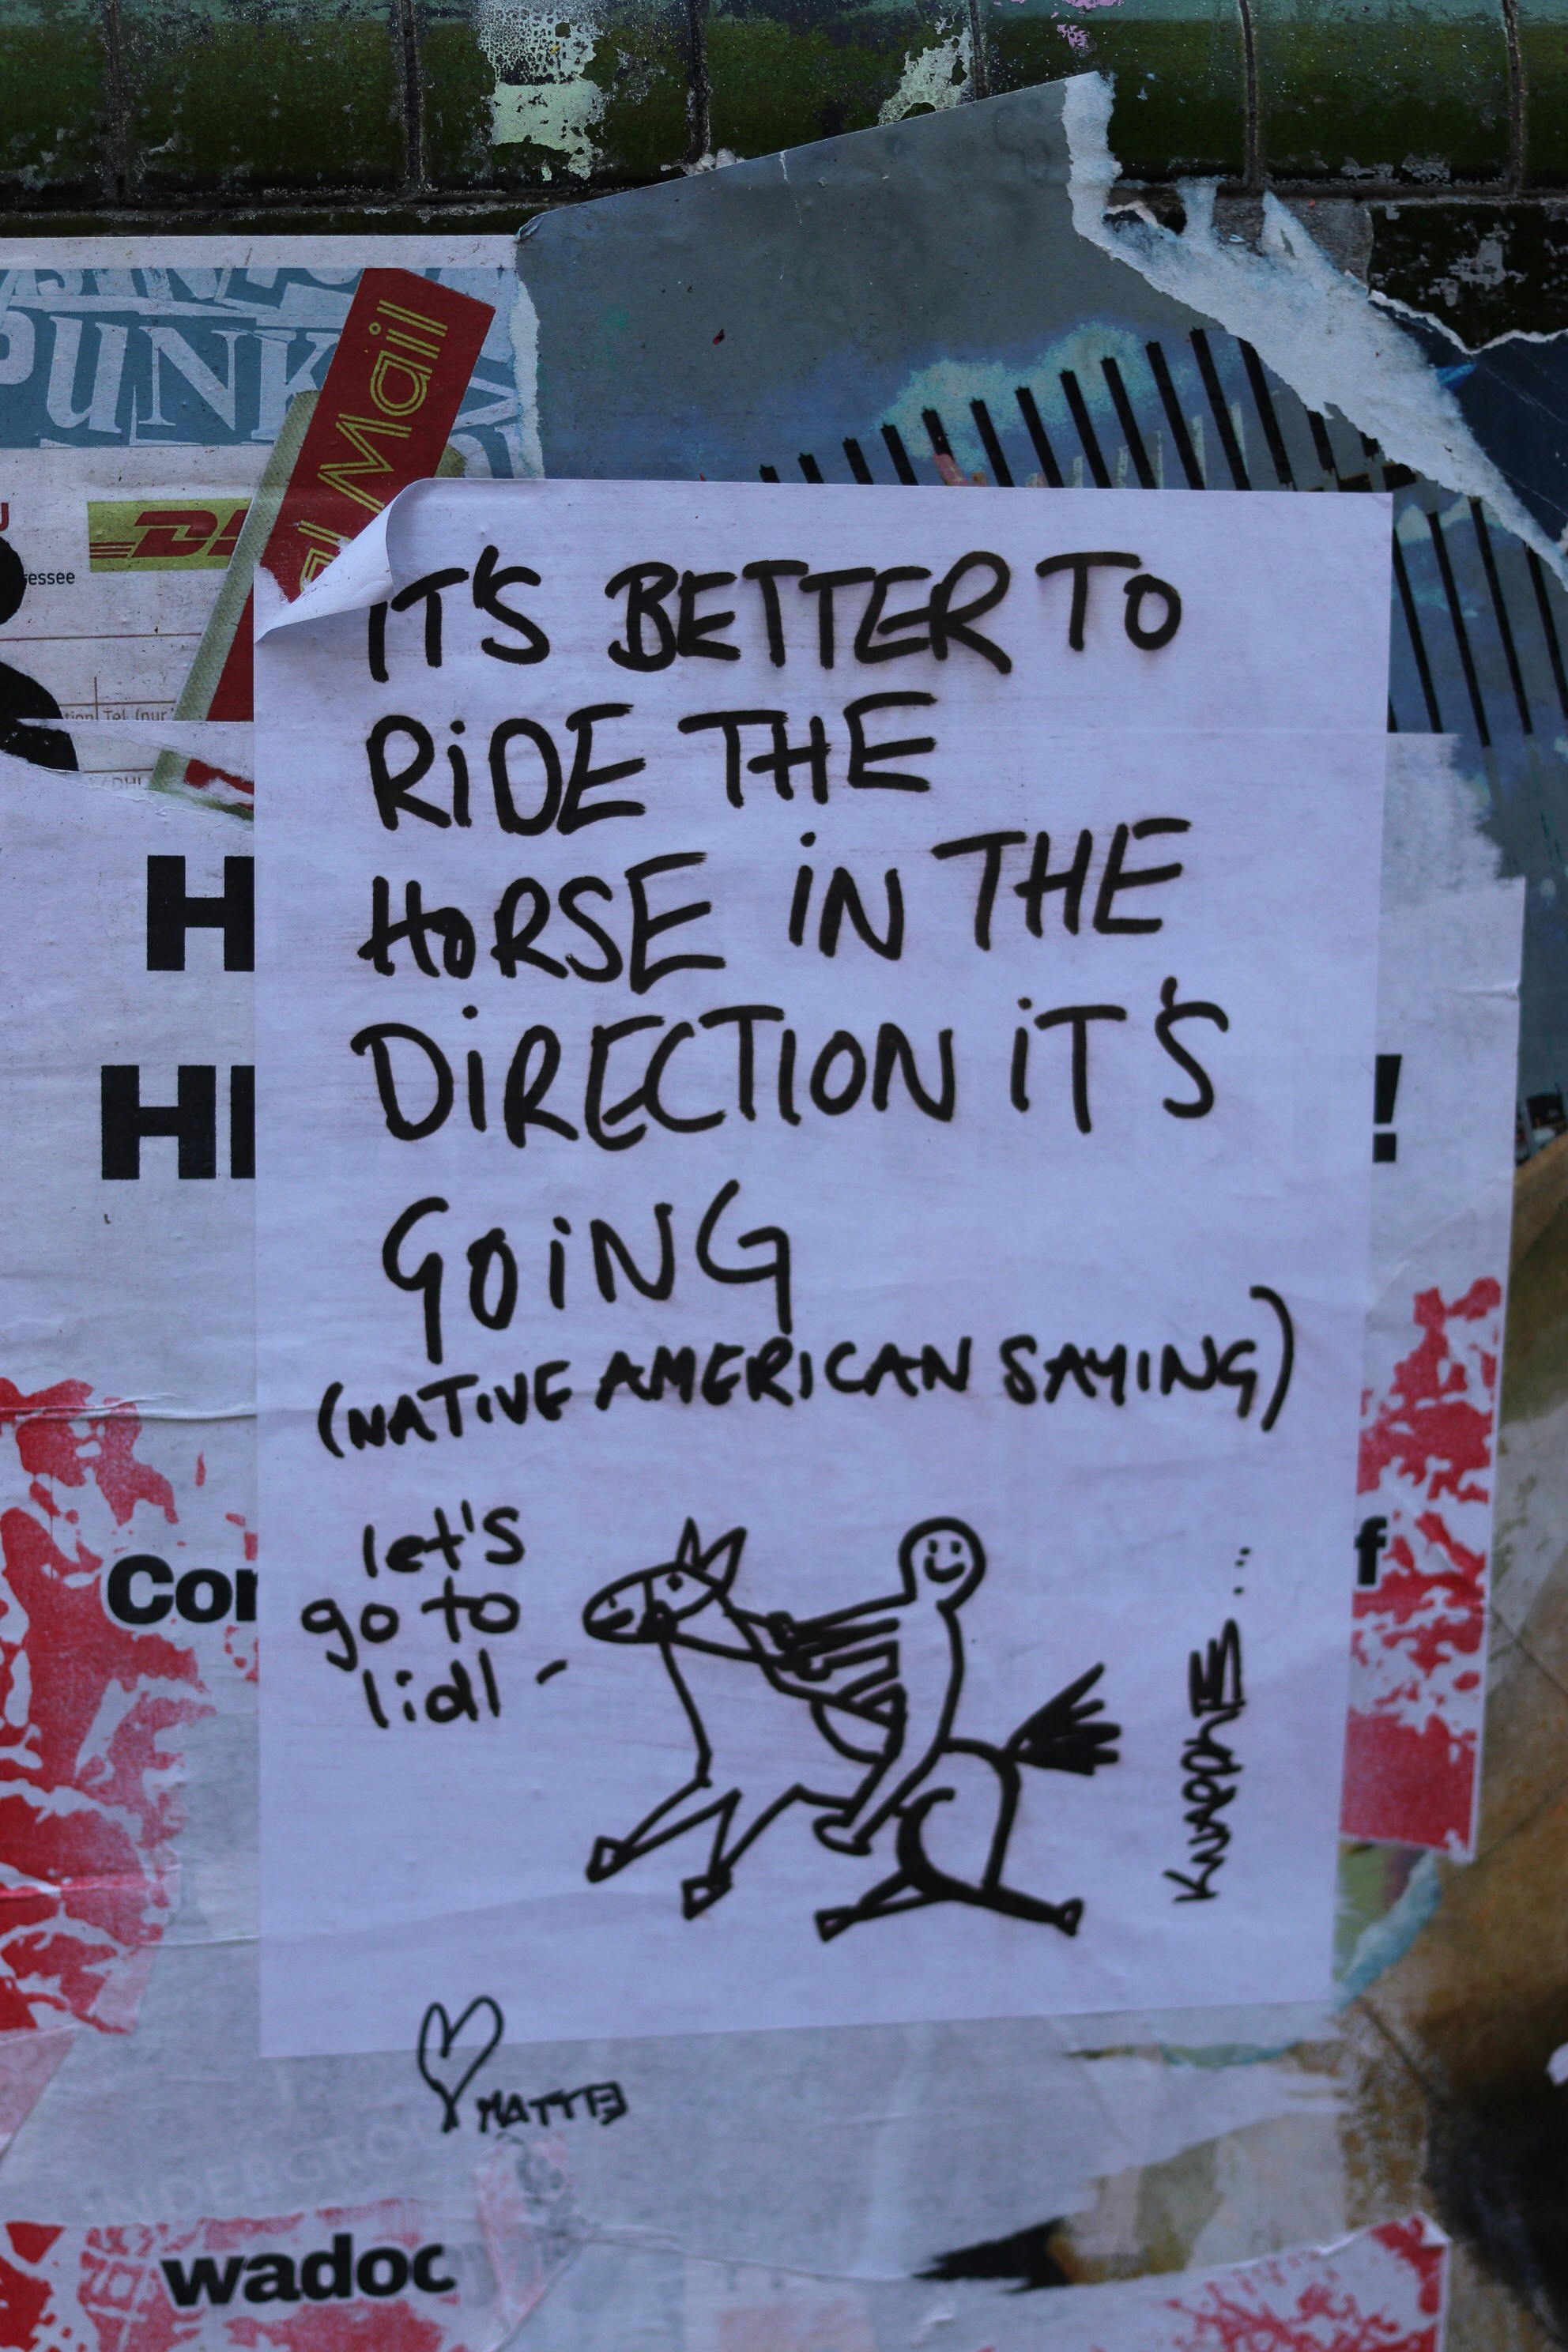 PUNK
Mail
DH
essee
Tel. (nur
DHL
IT'S BETTER TO
RiDE THE
HORSE iN THE
DiRECTION iT'S
GOiNG
(NATIVE AMERICAN SAYING)
let's
go to
lidl
H
HI
!
Con
f
MATTE
wadoc